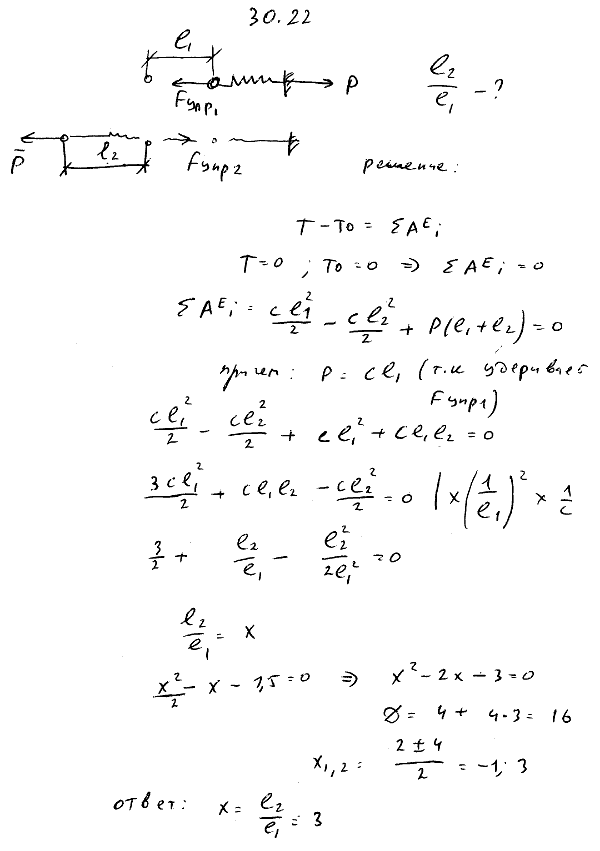 30.22
l₁
Fупр₁
P
l₂/l₁ - ?
P̄
l₂
Fупр2
решение:
T - T₀ = ΣAᴱᵢ
T=0 ; T₀=0 ⇒ ΣAᴱᵢ = 0
ΣAᴱᵢ = cl₁²/2 - cl₂²/2 + P(l₁+l₂) = 0
причем: P = cl₁ (т.к удеривает
Fупр1)
cl₁²/2 - cl₂²/2 + cl₁² + cl₁l₂ = 0
3cl₁²/2 + cl₁l₂ - cl₂²/2 = 0 | × (1/l₁)² × 1/c
3/2 + l₂/l₁ - l₂²/2l₁² = 0
l₂/l₁ = x
x²/2 - x - 1,5 = 0 ⇒ x² - 2x - 3 = 0
D = 4 + 4·3 = 16
x₁,₂ = (2 ± 4)/2 = -1; 3
ответ: x = l₂/l₁ = 3